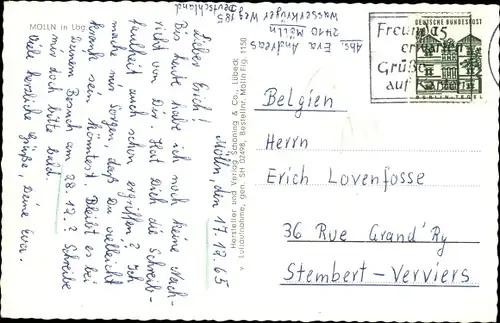 MÖLLN in Lbg
Mölln, den 17.12.65
Lieber Erich!
Bis heute habe ich noch keine Nach-
richt von Dir. Hat Dich die Schreib-
faulheit auch schon ergriffen? Ich
mache mir Sorgen, daß Du vielleicht
krank sein könntest. Bleibt es bei
Deinem Besuch am 28.12.? Schreibe
mir doch bitte bald.
Viele herzliche Grüße, Deine Eva.
Hersteller und Verlag Schöning & Co., Lübeck
Luftaufnahme, gen. SH 02498, Bestellnr. Mölln Flg. 1150
Abs. Eva Andreas
2410 Mölln
Wasserkrüger Weg 185
Deutschland
Freunde
erwarten
Grüße
auf Karten
DEUTSCHE BUNDESPOST
15
Belgien
Herrn
Erich Lovenfosse
36 Rue Grand' Ry
Stembert-Verviers